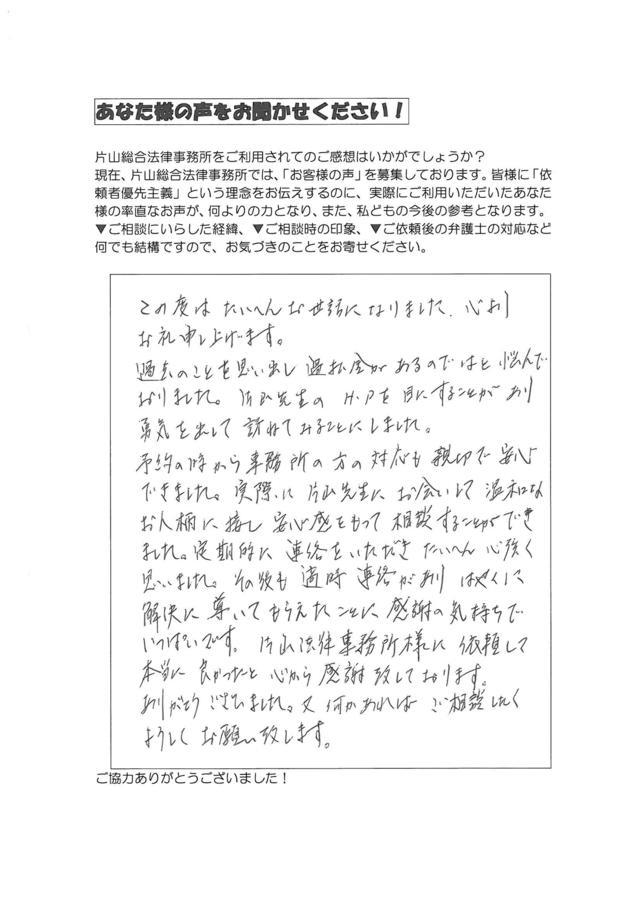 あなた様の声をお聞かせください！
片山総合法律事務所をご利用されてのご感想はいかがでしょうか？
現在、片山総合法律事務所では、「お客様の声」を募集しております。皆様に「依
頼者優先主義」という理念をお伝えするのに、実際にご利用いただいたあなた
様の率直なお声が、何よりの力となり、また、私どもの今後の参考となります。
▼ご相談にいらした経緯、▼ご相談時の印象、▼ご依頼後の弁護士の対応など
何でも結構ですので、お気づきのことをお寄せください。
この度は たいへんお世話になりました。心より
お礼申し上げます。
過去のことを思い出し 過払金があるのではと悩んで
おりました。片山先生の H・Pを目にすることがあり
勇気を出して 訪ねてみることにしました。
予約の時から事務所の方の対応も親切で安心
できました。実際に片山先生にお会いして温和な
お人柄に接し 安心感をもって相談することができ
ました。定期的に連絡をいただき たいへん心強く
思いました。その後も適時連絡があり はやくに
解決に導いてもらえたことに感謝の気持ちで
いっぱいです。片山法律事務所様に依頼して
本当に良かったと心から感謝致しております。
ありがとうございました。又何かあれば ご相談したく
よろしくお願い致します。
ご協力ありがとうございました！